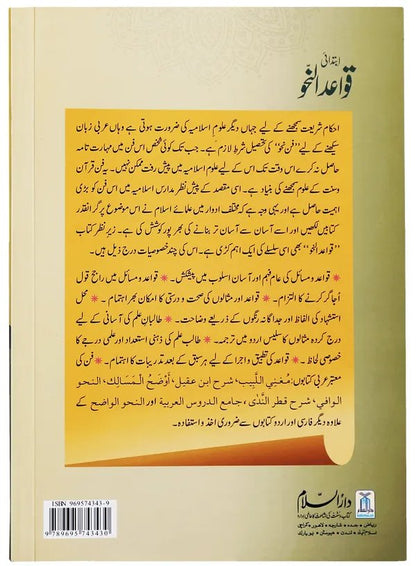 ابتدائی
قواعد النحو
احکام شریعت سمجھنے کے لیے جہاں دیگر علوم اسلامیہ کی ضرورت ہوتی ہے وہاں عربی زبان
سیکھنے کے لیے ”فن نحو“ کی تحصیل شرط لازم ہے۔ جب تک کوئی شخص اس فن میں مہارت تامہ
حاصل نہ کرے اس وقت تک اس کے لیے علوم اسلامیہ میں پیش رفت ممکن نہیں۔ یہ فن قرآن
وسنت کے علوم سمجھنے کی بنیاد ہے۔ اسی مقصد کے پیش نظر مدارس اسلامیہ میں اس فن کو بڑی
اہمیت حاصل ہے اور یہی وجہ ہے کہ مختلف ادوار میں علمائے اسلام نے اس موضوع پر گرانقدر
کتابیں لکھیں اور اسے آسان سے آسان تر بنانے کی بھرپور کوشش کی ہے۔ زیر نظر کتاب
”قواعد النحو“ بھی اسی سلسلے کی ایک اہم کڑی ہے۔ اس کی چند خصوصیات درج ذیل ہیں۔
✷ قواعد و مسائل کی عام فہم اور آسان اسلوب میں پیشکش۔ ✷ قواعد و مسائل میں راجح قول
اُجاگر کرنے کا التزام۔ ✷ قواعد اور مثالوں کی صحت و درستی کا امکان بھر اہتمام۔ ✷ محل
استشہاد کی الفاظ اور جداگانہ رنگوں کے ذریعے وضاحت۔ ✷ طالبانِ علم کی آسانی کے لیے
درج کردہ مثالوں کا سلیس اردو میں ترجمہ۔ ✷ طالب علم کی ذہنی استعداد اور علمی درجے کا
خصوصی لحاظ۔ ✷ قواعد کی تطبیق و اجرا کے لیے ہر سبق کے بعد تدریبات کا اہتمام۔ ✷ فن کی
معتبر عربی کتابوں: مُغنِي اللَّبِيب، شرح ابن عقيل، أَوْضَحُ الْمَسَالِك، النحو
الوافي، شرح قطر النَّدٰى، جامع الدروس العربية اور النحو الواضح کے
علاوہ دیگر فارسی اور اردو کتابوں سے ضروری اخذ و استفادہ۔
ISBN 969574343-9
9789695743430
دارالسلام
کتاب و سنت کی اشاعت کا عالمی ادارہ
ریاض • جدہ • شارجہ • لاہور • کراچی
اسلام آباد • لندن • ہیوسٹن • نیو یارک